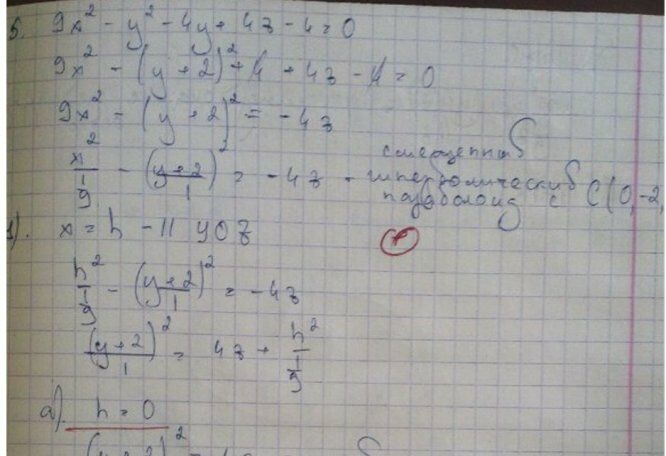 5. 9x² - y² - 4y + 4z - 4 = 0
9x² - (y + 2)² + 4 + 4z - 4 = 0
9x² - (y + 2)² = -4z
x²/(1/9) - ((y+2)/1)² = -4z - смещенный
гиперболический
параболоид с C(0, -2,
1). x = h - || yOz
h²/(1/9) - ((y+2)/1)² = -4z
((y+2)/1)² = 4z + h²/(1/9)
а). h = 0